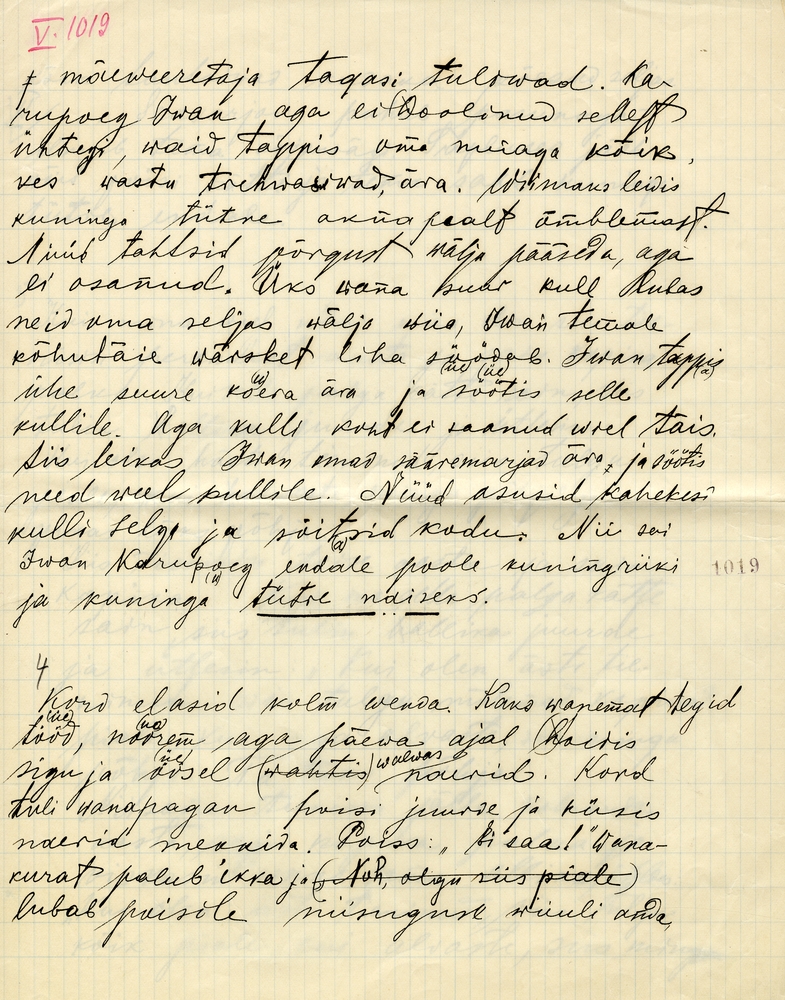 V. 1019
ja mäeweeretaja tagasi tuliwad. Ka-
rupoeg Iwan aga ei (h)oolinud sellest
ühtegi, waid tappis oma mõõgaga kõik,
kes wastu trehwasiwad, ära. Wiimaks leidis
kuninga tütre akna pealt õmblemast.
Nüüd tahtsid põrgust wälja pääseda, aga
ei osanud. Üks wana suur kull lubas
neid oma seljas wälja wiia, Iwan temale
kõhutäie wärsket liha söödab. Iwan tappis
(üe) (üe) (a)
ühe suure kõera ära ja söötis selle
(u)
kullile. Aga kulli kõht ei saanud weel täis.
Siis leikas Iwan omad sääremarjad ära, ja söötis
need weel kullile. Nüüd asusid kahekesi
kulli selga ja sõitsid kodu. Nii sai
Iwan Karupoeg endale poole kuningriiki
(a)
1019
ja kuninga tütre naiseks.
(u)
4
Kord elasid kolm wenda. Kaks wanemat tegid
tööd, noorem aga päewa ajal (h)oidis
(üe) (uo)
sigu ja öösel (wahtis) walwas naerid. Kord
üe
tuli wanapagan poisi juurde ja küsis
naerid mekkida. Poiss: „Ei saa!" Wana-
kurat palub ikka ja (, Noh, olgu siis piale)
lubab poisile niisuguse wiuuli anda,